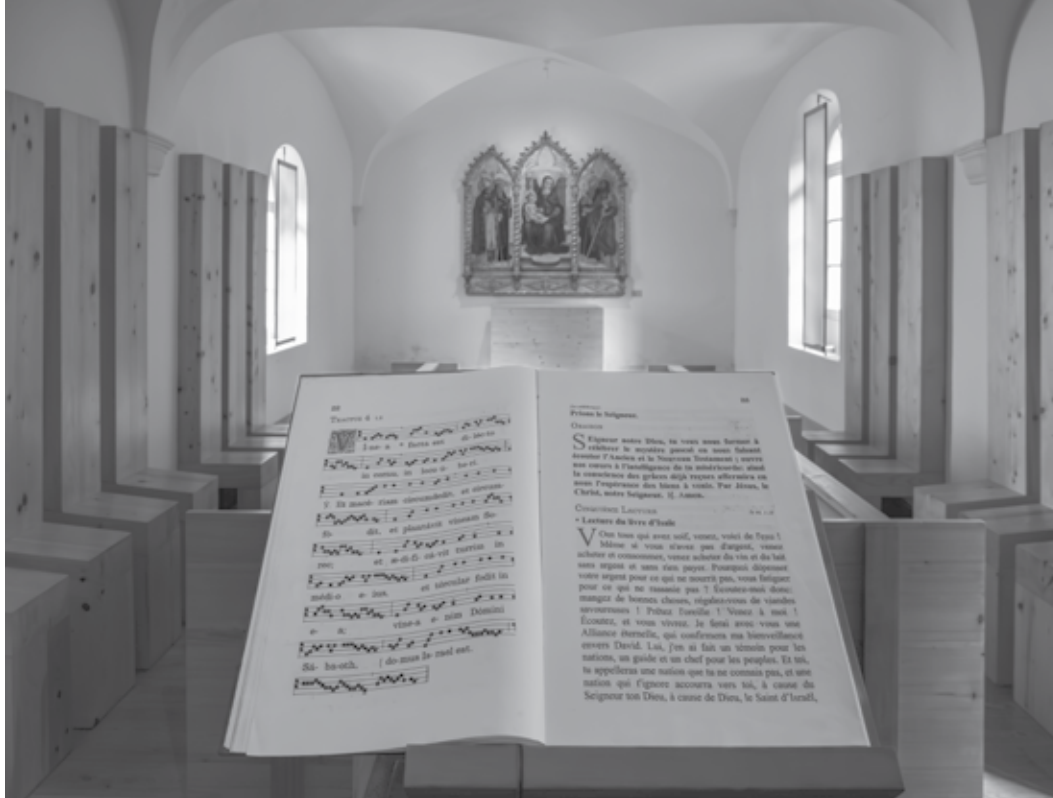 TRACTUS
Ine-a * facta est di-lécta
in cornu, in loco ú- be-ri.
℣. Et macé- riam circúmdedit, et circum-
fó- dit, et plantávit víneam So-
rec; et æ-di-fi- cá-vit turrim in
médi-o e- ius, et tórcular fodit in
e- a; víne-a e- nim Dómini
Sá- ba-oth, | domus Is-rael est.
Prions le Seigneur.
ORAISON
SEigneur notre Dieu, tu veux nous former à
célébrer le mystère pascal en nous faisant
écouter l'Ancien et le Nouveau Testament ; ouvre
nos cœurs à l'intelligence de ta miséricorde: ainsi
la conscience des grâces déjà reçues affermira en
nous l'espérance des biens à venir. Par Jésus, le
Christ, notre Seigneur. ℟. Amen.
CINQUIÈME LECTURE
• Lecture du livre d'Isaïe
VOus tous qui avez soif, venez, voici de l'eau !
Même si vous n'avez pas d'argent, venez
acheter et consommer, venez acheter du vin et du lait
sans argent et sans rien payer. Pourquoi dépenser
votre argent pour ce qui ne nourrit pas, vous fatiguer
pour ce qui ne rassasie pas ? Écoutez-moi donc:
mangez de bonnes choses, régalez-vous de viandes
savoureuses ! Prêtez l'oreille ! Venez à moi !
Écoutez, et vous vivrez. Je ferai avec vous une
Alliance éternelle, qui confirmera ma bienveillance
envers David. Lui, j'en ai fait un témoin pour les
nations, un guide et un chef pour les peuples. Et toi,
tu appelleras une nation que tu ne connais pas, et une
nation qui t'ignore accourra vers toi, à cause du
Seigneur ton Dieu, à cause de Dieu, le Saint d'Israël,